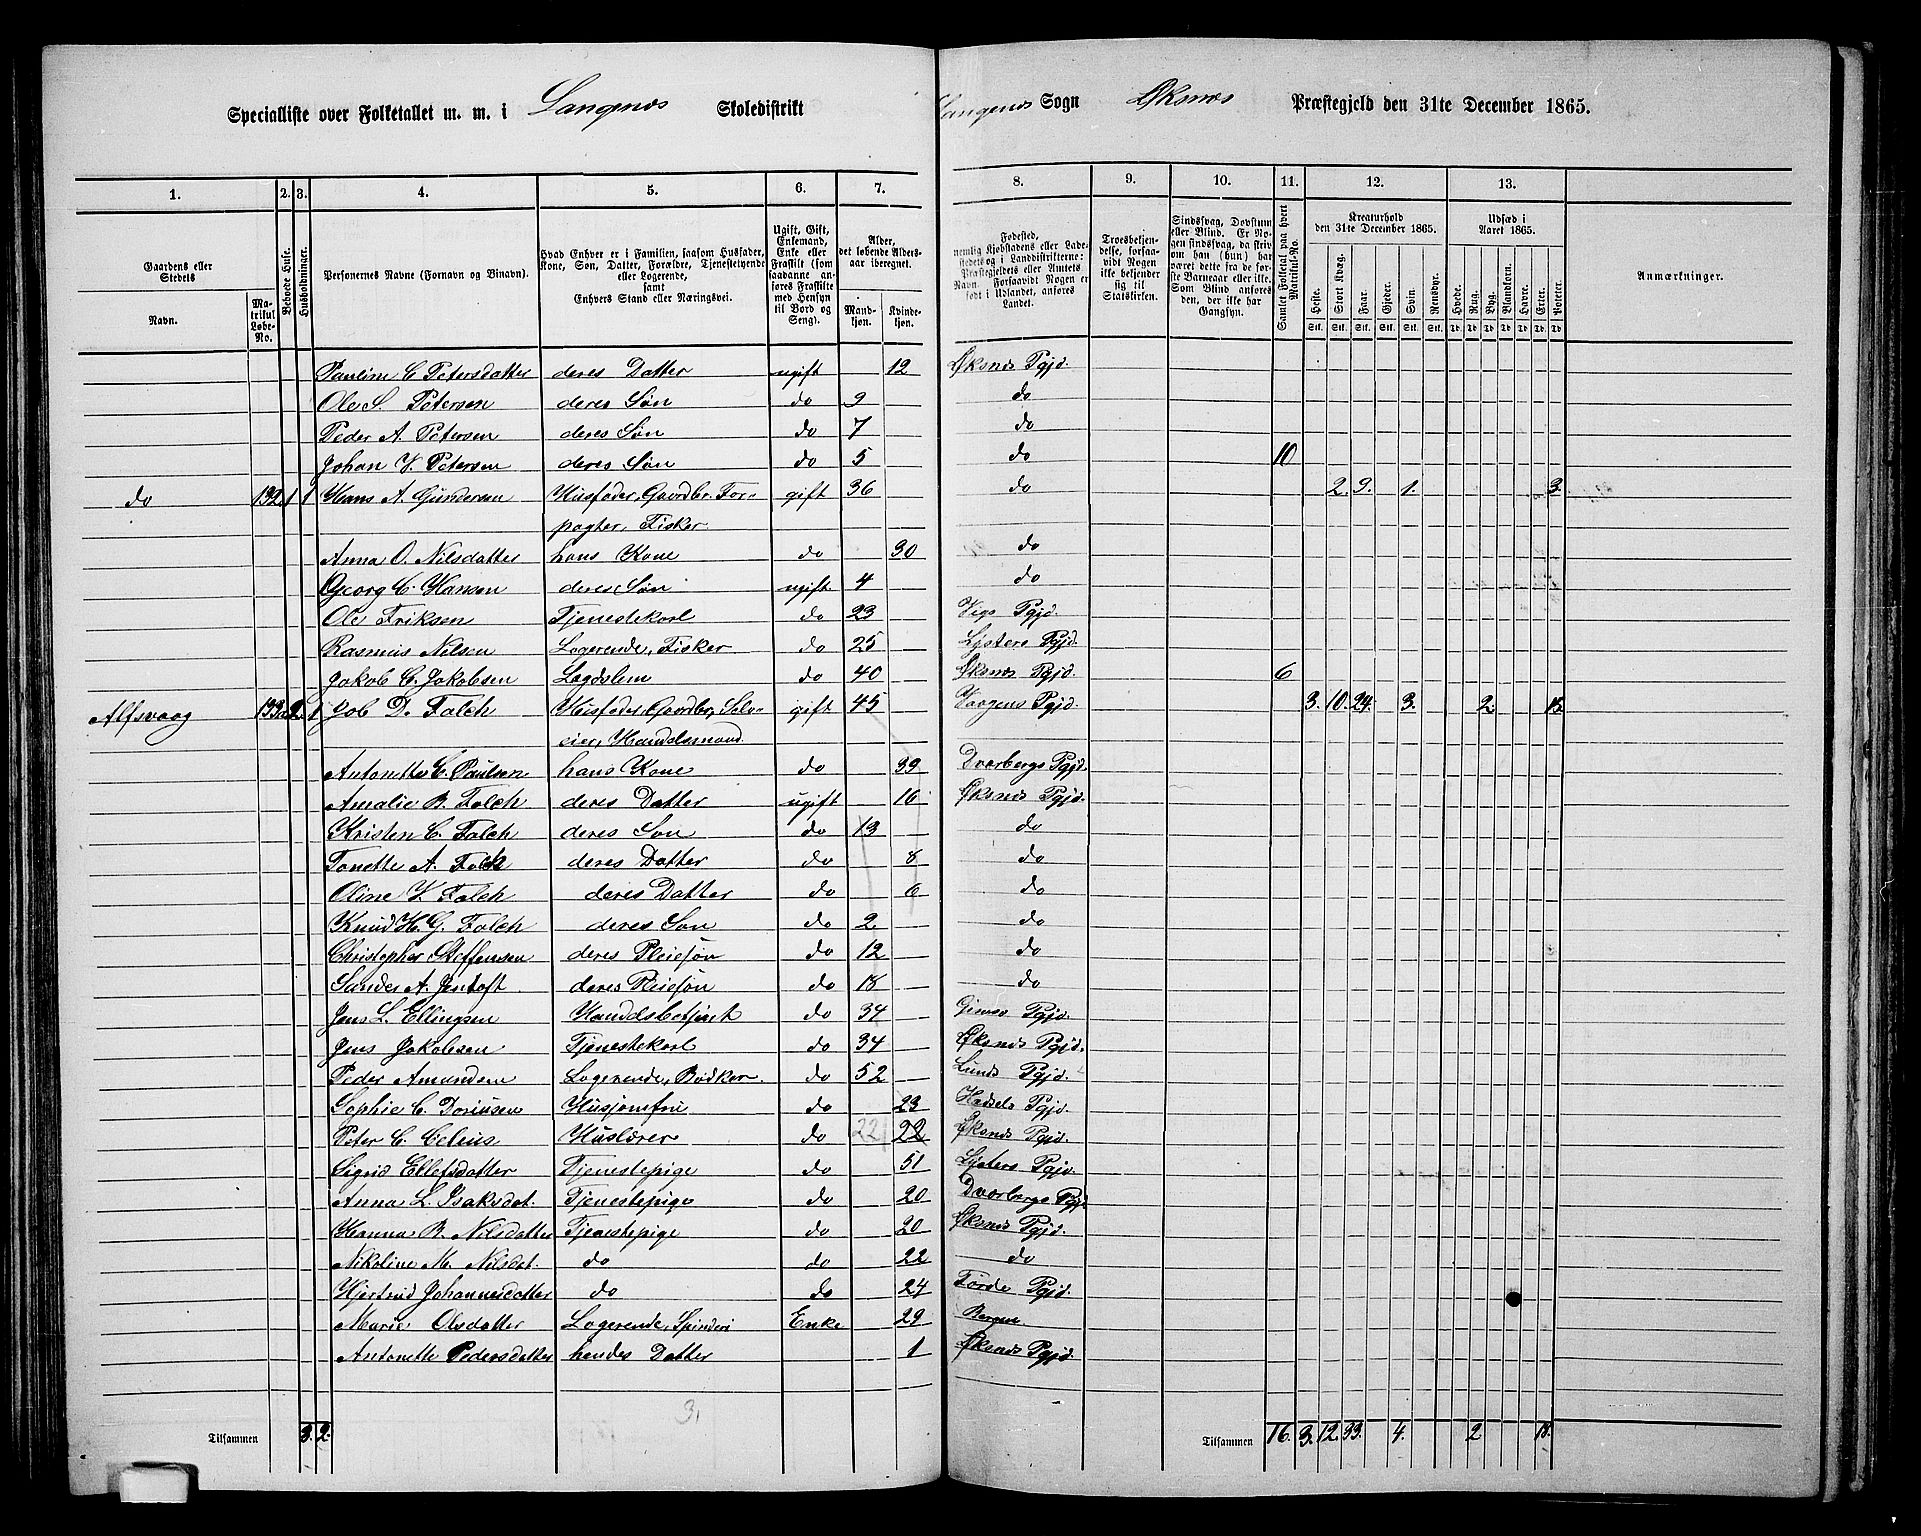 Specialliste over Folketallet m. m. i Langenes Skoledistrikt Langenes Sogn Øksnes Præstegjeld den 31te December 1865.
1. 2. 3. 4. 5. 6. 7. 8. 9. 10. 11. 12. 13.
Gaardens eller Stedets Navn. Matrikul Løbe-No. Beboede Huse. Husholdninger. Personernes Navne (Fornavn og Binavn). Hvad Enhver er i Familien, saasom Husfader, Kone, Søn, Datter, Forældre, Tjenestetyende eller Logerende, samt Enhvers Stand eller Næringsvei. Ugift, Gift, Enkemand, Enke eller Fraskilt (som saadanne anføres Fraskilte med Hensyn til Bord og Seng). Alder, det løbende Aldersaar iberegnet. Mandkjøn. Kvindekjøn. Fødested, nemlig Kjøbstadens eller Ladestedets og i Landdistrikterne: Præstegjeldets eller Amtets Navn. Forsaavidt Nogen er født i Udlandet, anføres Landet. Troesbekjendelse, forsaavidt Nogen ikke bekjender sig til Statskirken. Sindssvag, Døvstum eller Blind. Er Nogen sindssvag, da skriv om han (hun) har været dette fra de første Barneaar eller ikke. Som Blind anføres den, der ikke har Gangsyn. Samlet Folketal paa hvert Matrikul-No. Kreaturhold den 31te December 1865. Heste. Stort Kvæg. Faar. Gjeder. Svin. Rensdyr. Udsæd i Aaret 1865. Hvede. Rug. Byg. Blandkorn. Havre. Erter. Poteter. Anmærkninger.
Pauline C Petersdatter deres Datter ugift 12 Øksnes Pgjd.
Ole S. Petersen deres Søn do 9 do
Peder A. Petersen deres Søn do 7 do
Johan V. Petersen deres Søn do 5 do 10
do 132 1 1 Hans A. Gundersen Husfader, Gaardbr. For- gift 36 do 2. 9. 1. 3.
pagter, Fisker
Anna O. Nilsdatter hans Kone do 30 do
Georg C. Hansen deres Søn ugift 4 do
Ole Eriksen Tjenestekarl do 23 Vigs Pgjd.
Rasmus Nilsen Logerende, Fisker do 25 Lysters Pgjd.
Jakob C. Jakobsen Lægdslem do 40 Øksnes Pgjd. 6
Alfsvaag 133 2. 1 Job D. Falch Husfader, Gaardbr, Selv- gift 45 Vaagens Pgjd. 3. 10. 24. 3. 2. 15.
eier, Handelsmand.
Antonette C. Paulsen hans Kone do 39 Dverbergs Pgjd.
Amalie B. Falch deres Datter ugift 16 Øksnes Pgjd.
Kristen C. Falch deres Søn do 13 do
Tonette A. Falch deres Datter do 8 do
Oline V. Falch deres Datter do 6 do
Knud H. G. Falch deres Søn do 2 do
Christopher Steffensen deres Pleiesøn do 12 do
Sander A. Jentoft deres Pleiesøn do 18 do
Jens L. Ellingsen Handelsbetjent do 34 Gimsø Pgjd.
Jens Jakobsen Tjenestekarl do 34 Øksnes Pgjd.
Peder Amundsen Logerende, Bødker. do 52 Lunds Pgjd.
Sophie C. Doriusen Husjomfru do 23 Hadsels Pgjd.
Peter C. Huslærer do 22 22 Øksnes Pgjd.
Sigrid Ellefsdatter Tjenestepige do 51 Lysters Pgjd.
Anna L. Isaksdat. Tjenestepige do 20 Dverbergs Pgjd.
Hanna B. Nilsdatter Tjenestepige do 20 Øksnes Pgjd.
Nikoline M. Nilsdat. do do 22 do
Hjertrud Johannesdatter do do 24 Førde Pgjd.
Marie Olsdatter Logerende, Spinderi Enke 29 Bergen
Antonette Pedersdatter hendes Datter 1 Øksnes Pgjd.
3,
Tilsammen 3. 2. Tilsammen 16. 3. 12. 33. 4. 2 18.